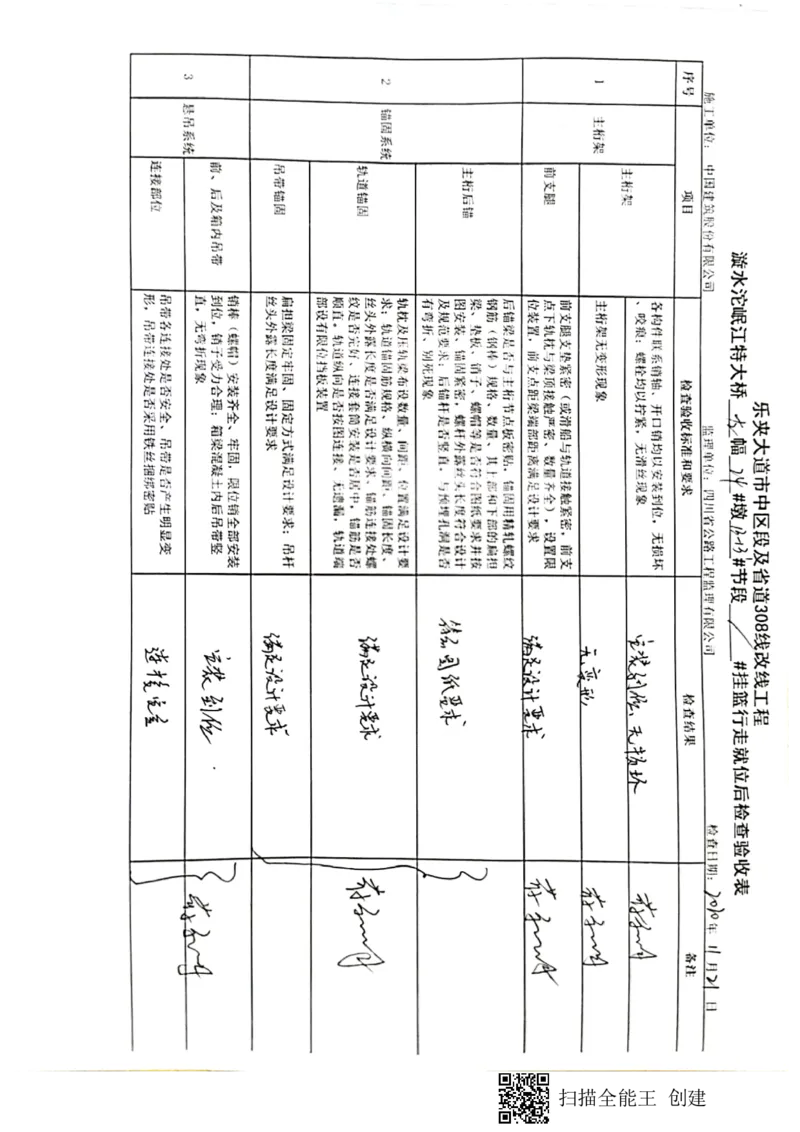 乐夹大道市中区段及省道308线改线工程
漩水沱岷江特大桥 幅 #墩 #节段 #挂篮行走就位后检查验收表
施工单位：中国建筑股份有限公司 监理单位：四川省公路工程监理有限公司 检查日期：2020年11月21日
序号 项目 检查验收标准和要求 检查结果 备注
1 主桁架 主桁架 各构件联系销轴、开口销均以安装到位，无损坏
、咬痕；螺栓均以拧紧，无滑丝现象 安装到位、无损坏
主桁架无变形现象 无变形
前支腿 前支腿支垫紧密（或滑船与轨道接触紧密，前支
点下轨枕与梁顶接触严密，数量齐全），设置限
位装置，前支点距梁端部距离满足设计要求 满足设计要求
2 锚固系统 主桁后锚 后锚梁是否与主桁节点板密贴，锚固用精轧螺纹
钢筋（钢棒）规格、数量、其上部和下部的扁担
梁、垫板、销子、螺帽等是否符合图纸要求并按
图安装、锚固紧密，螺杆外露丝头长度符合设计
及规范要求；后锚杆是否竖直，与预埋孔洞是否
有弯折、别死现象 符合图纸要求
轨道锚固 轨枕及压轨梁布设数量、间距、位置满足设计要
求；轨道锚固筋规格、纵横向间距、锚固长度、
丝头外露长度是否满足设计要求、锚筋连接处螺
纹是否完好、连接套筒安装是否居中，锚筋是否
顺直，轨道纵向是否按图连接、无遗漏，轨道端
部设有限位挡板装置 满足设计要求
吊带锚固 扁担梁固定牢固、固定方式满足设计要求；吊杆
丝头外露长度满足设计要求 满足设计要求
3 悬吊系统 前、后及箱内吊带 销棒（螺帽）安装齐全、牢固，限位销全部安装
到位，销子受力合理；箱梁混凝土内后吊带竖
直，无弯折现象 安装到位.
连接部位 吊带各连接处是否安全、吊带是否产生明显变
形，吊带连接处是否采用铁丝捆绑密贴 连接安全
扫描全能王 创建